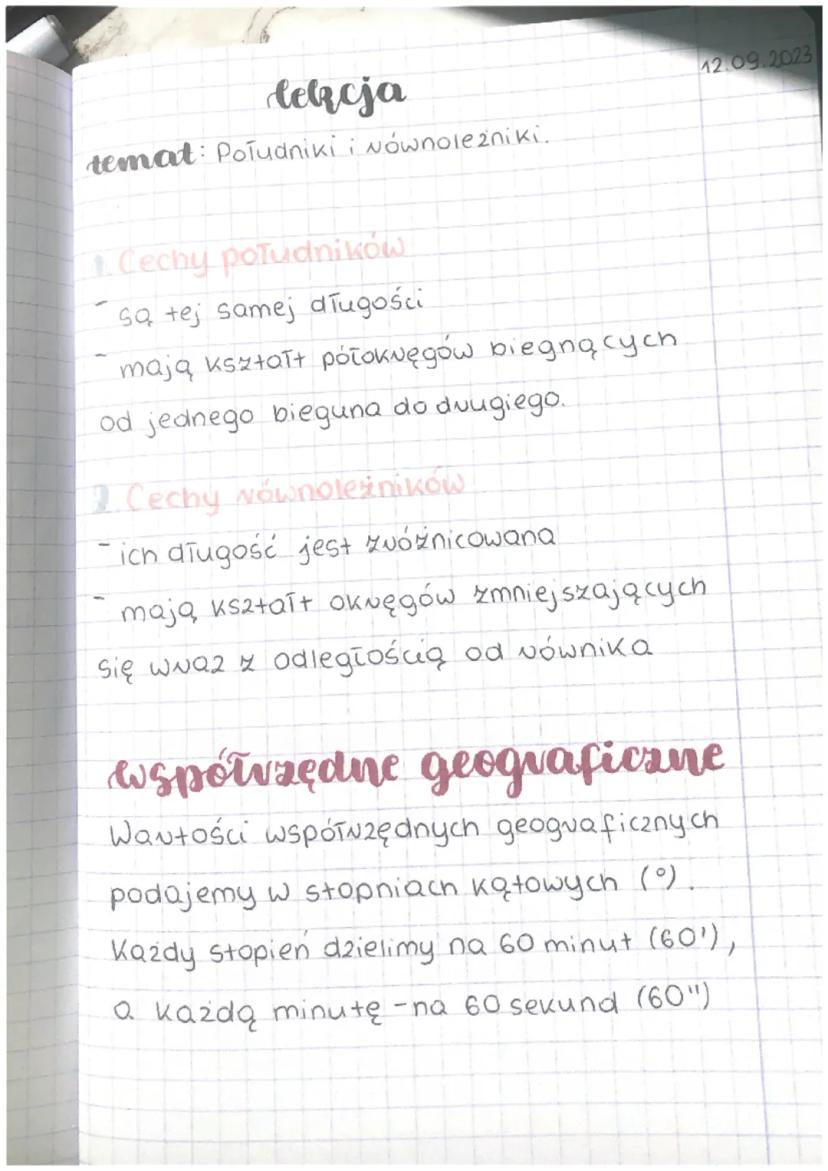 12.09.2023
lekcja
temat: Południki i równoleżniki.
1. Cechy południków
- są tej samej długości
- mają kształt półokręgów biegnących
od jednego bieguna do drugiego.
2. Cechy równoleżników
- ich długość jest zróżnicowana
- mają kształt okręgów zmniejszających
się wraz z odległością od równika
współrzędne geograficzne
Wartości współrzędnych geograficznych
podajemy w stopniach kątowych (°).
Każdy stopień dzielimy na 60 minut (60'),
a każdą minutę - na 60 sekund (60")